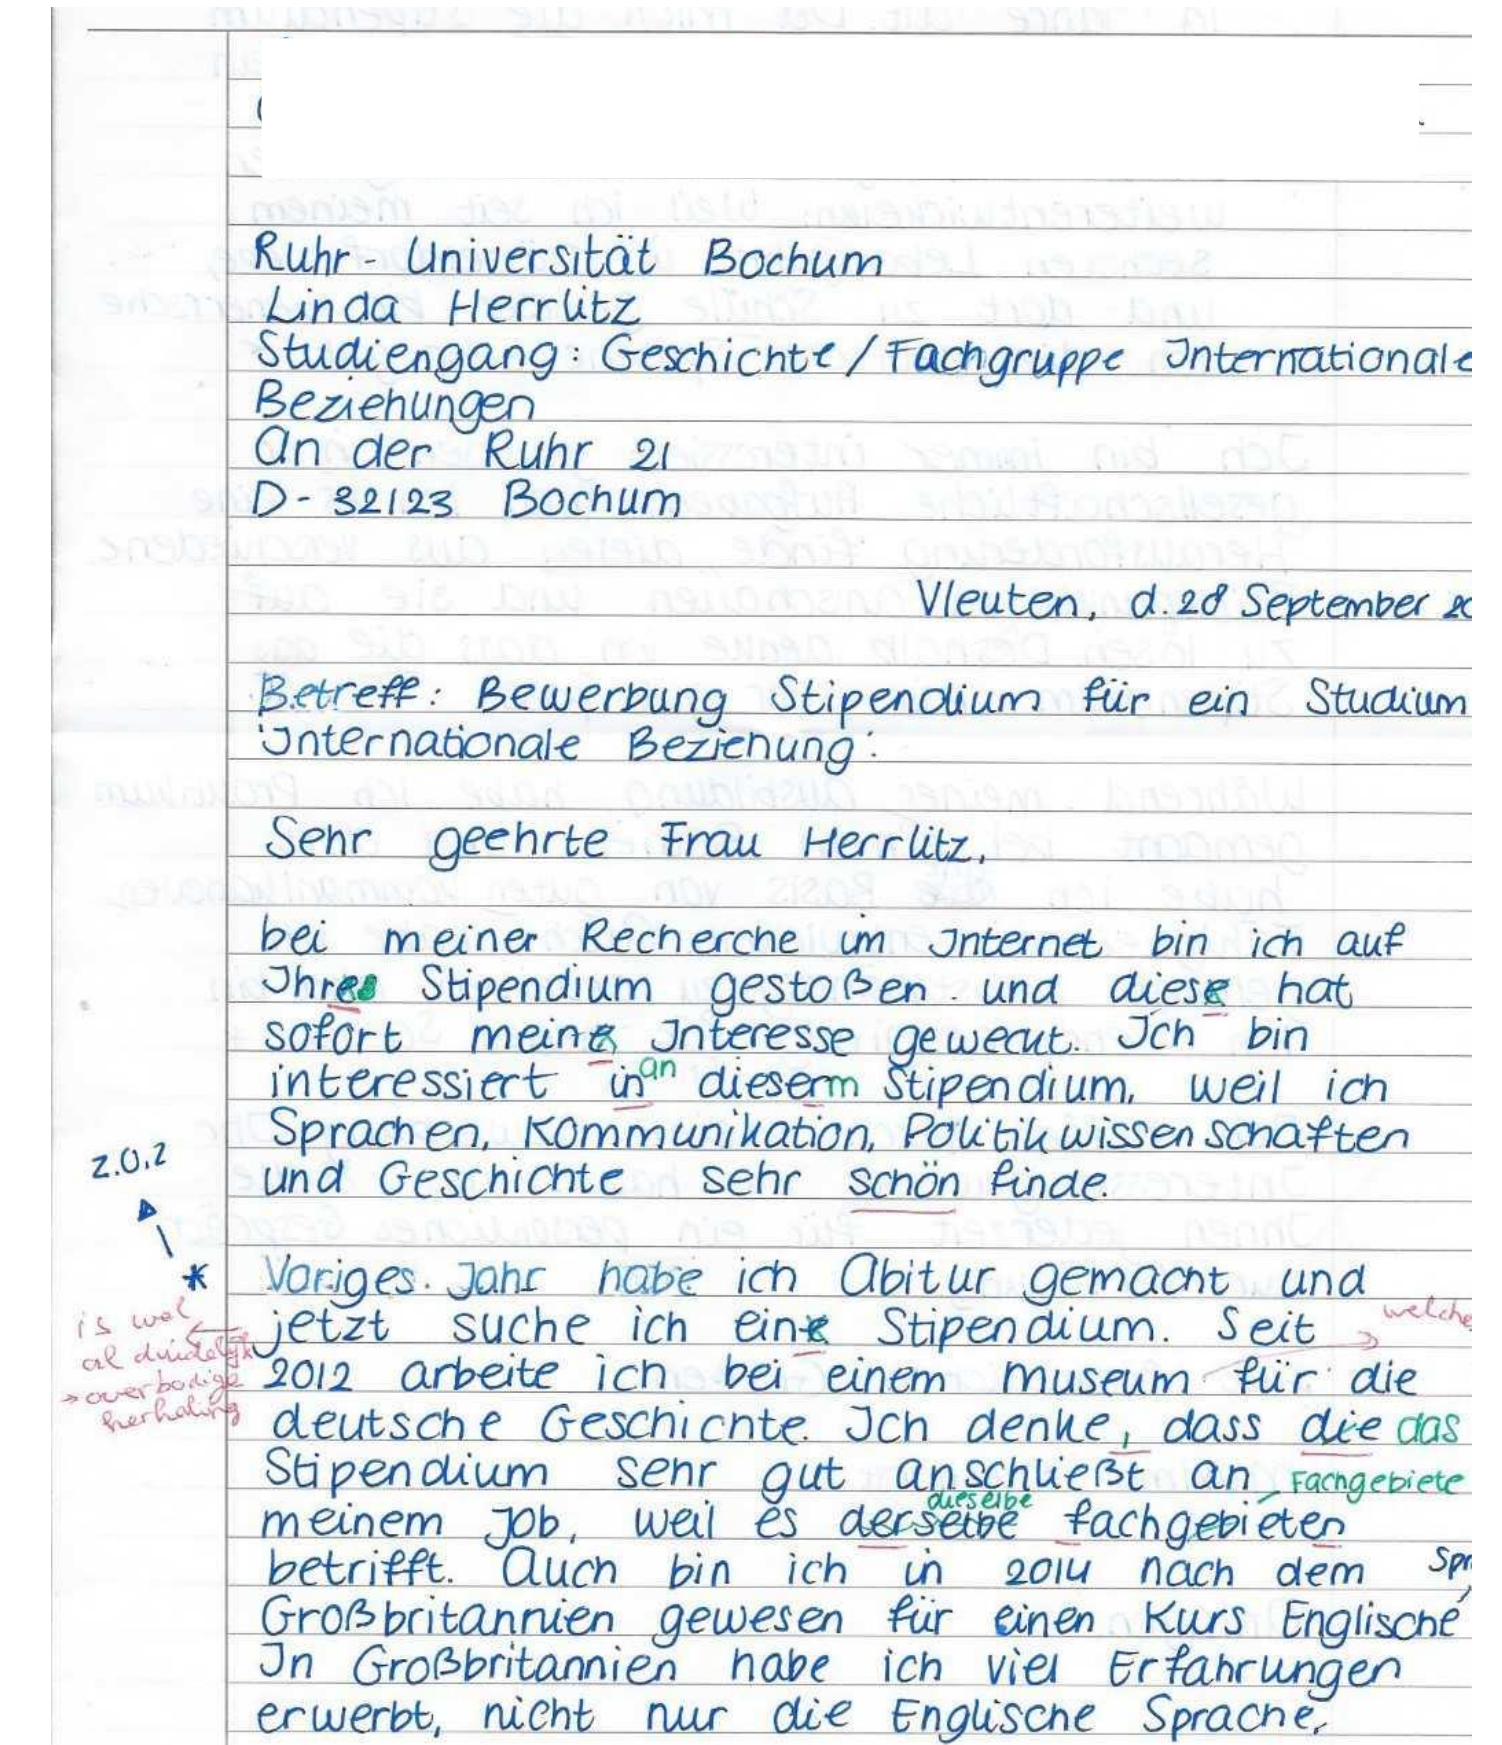 Ruhr-Universität Bochum
Linda Herrlitz
Studiengang: Geschichte/Fachgruppe Internationale
Beziehungen
An der Ruhr 21
D-32123 Bochum
Vleuten, d. 28 September 20
Betreff: Bewerbung Stipendium für ein Studium
Internationale Beziehung:
Sehr geehrte Frau Herrlitz,
bei meiner Recherche im Internet bin ich auf
Ihres Stipendium gestoßen und diese hat
sofort meine Interesse geweckt. Ich bin
an
interessiert in diesem Stipendium, weil ich
Sprachen, Kommunikation, Politikwissenschaften
z.O.z
und Geschichte sehr schön finde.
* Voriges Jahr habe ich Abitur gemacht und
is wel
al duidelijk
→ overbodige
herhaling
welche
jetzt suche ich eine Stipendium. Seit
2012 arbeite ich bei einem Museum für die
deutsche Geschichte. Ich denke, dass die das
Stipendium sehr gut anschließt an Fachgebiete
dieselbe
meinem Job, weil es derselbe fachgebieten
betrifft. Auch bin ich in 2014 nach dem Spr
Großbritannien gewesen für einen Kurs Englische
In Großbritannien habe ich viel Erfahrungen
erwerbt, nicht nur die Englische Sprache,